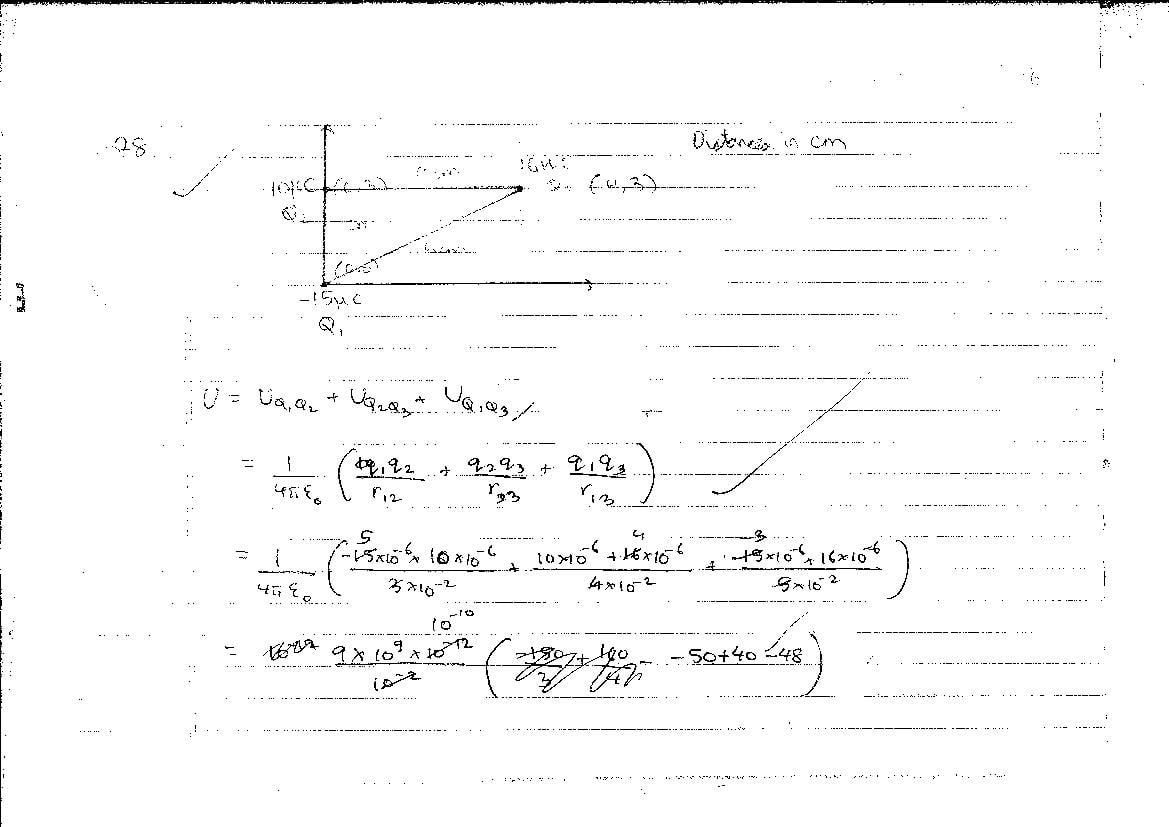 28
Distances in cm
16μC
10μC (0,3)
(4,3)
Q
-15μC
Q₁
U = U_{Q₁Q₂} + U_{Q₂Q₃} + U_{Q₁Q₃}
= 1/4πε₀ ( q₁q₂/r₁₂ + q₂q₃/r₂₃ + q₁q₃/r₁₃ )
= 1/4πε₀ ( -15×10⁻⁶ × 10×10⁻⁶ / 3×10⁻² + 10×10⁻⁶ + 16×10⁻⁶ / 4×10⁻² + -15×10⁻⁶ × 16×10⁻⁶ / 5×10⁻² )
= 9 × 10⁹ × 10⁻¹² / 10⁻² 10⁻¹⁰ ( -50+40-48 )